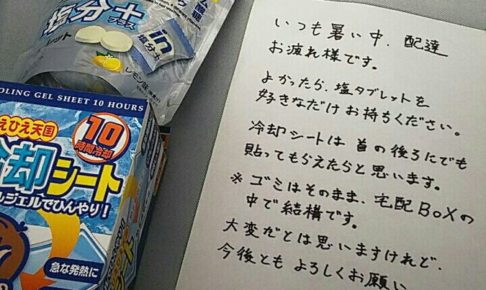 塩分＋
プラス
in
塩分
レモン
OLING GEL SHEET 10 HOURS
えひえ天国
10
時間冷却
冷却シート
ルジェルでひんやり!
急な発熱に
いつも暑い中、配達
お疲れ様です。
よかったら、塩タブレットを
好きなだけお持ちください。
冷却シートは首の後ろにでも
貼ってもらえたらと思います。
※ゴミはそのまま、宅配BOXの
中で結構です。
大変だとは思いますけれど、
今後ともよろしくお願い